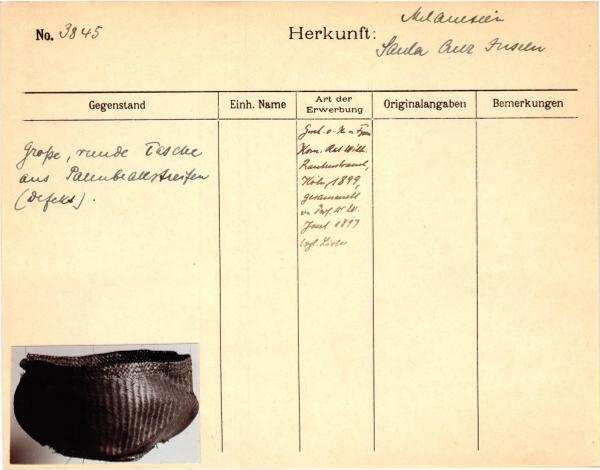 No. 3845
Herkunft: Melanesien
Santa Cruz Inseln
Gegenstand
Einh. Name
Art der
Erwerbung
Originalangaben
Bemerkungen
Große, runde Tasche
aus Palmblattstreifen
(defekt).
Gesch. v. H. u. Frau
Kom. Rat Wilh.
Rautenstrauch,
Köln, 1899,
gesammelt
v. Prof.
1897